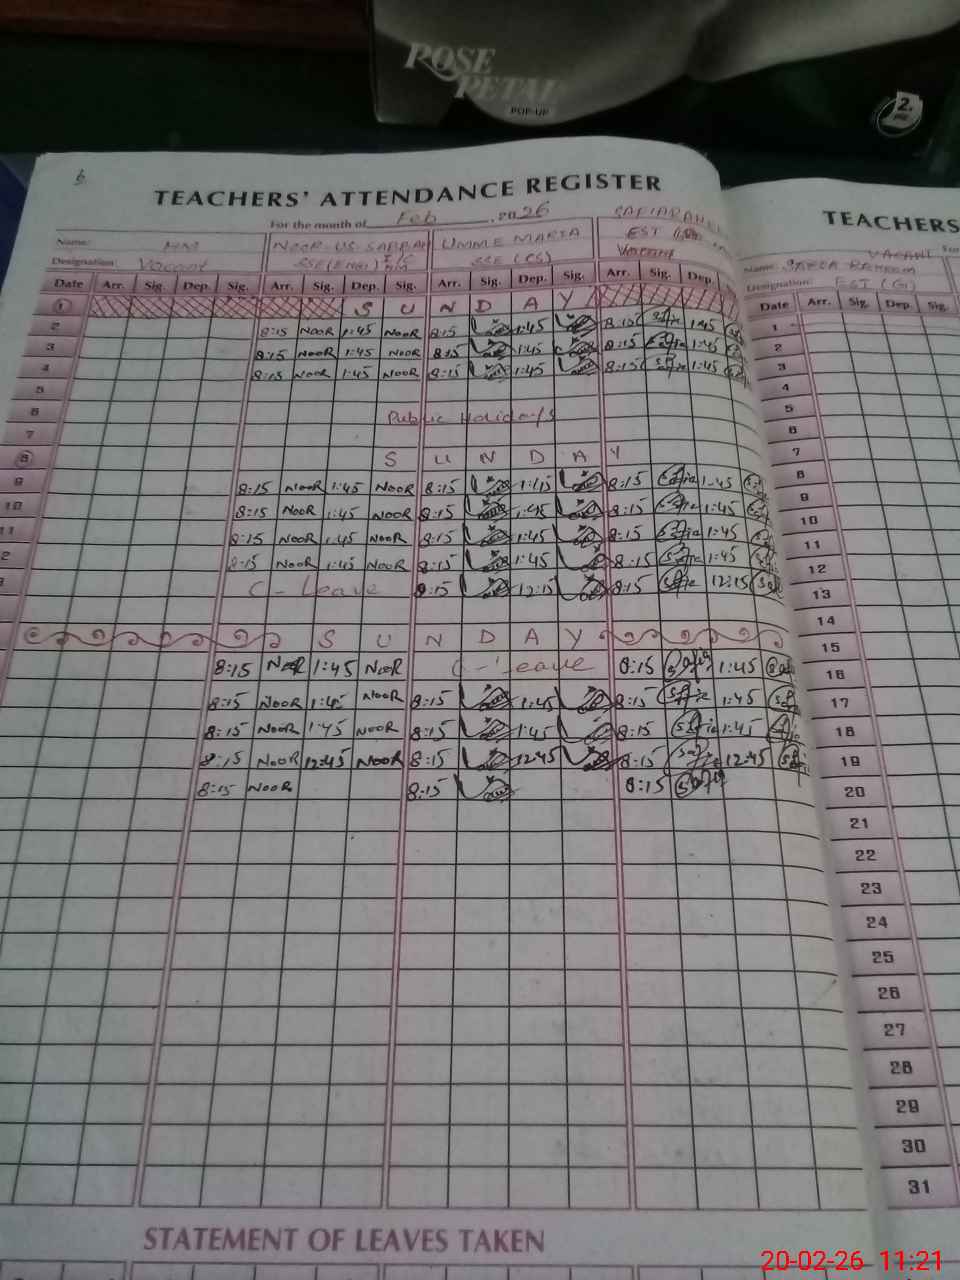 ROSE
PETAL
POP-UP
2
6
TEACHERS' ATTENDANCE REGISTER
For the month of Feb, 2026
Name: HM NOOR-US-SABBAH UMME MARIA
Designation: Vacant SSE(Eng) I/C HM SSE (CS) Vacant
Date Arr. Sig. Dep. Sig. Arr. Sig. Dep. Sig. Arr. Sig. Dep. Sig. Arr. Sig. Dep.
1 S U N D A Y
2 8:15 NOOR 1:45 NOOR 8:15 1:45 8:15 Safia 1:45
3 8:15 NOOR 1:45 NOOR 8:15 1:45 8:15 Safia 1:45
4 8:15 NOOR 1:45 NOOR 8:15 1:45 8:15 Safia 1:45
5
6 Public Holidays
7
8 S U N D A Y
9 8:15 NOOR 1:45 NOOR 8:15 1:45 8:15 Safia 1-45
10 8:15 NOOR 1:45 NOOR 8:15 1:45 8:15 Safia 1:45
11 8:15 NOOR 1:45 NOOR 8:15 1:45 8:15 Safia 1:45
2 8:15 NOOR 1:45 NOOR 8:15 1:45 8:15 Safia 1:45
C-Leave 8:15 12:15 8:15 Safia 12:15
S U N D A Y
8:15 NOOR 1:45 NOOR C-Leave 8:15 Safia 1:45
8:15 NOOR 1:45 NOOR 8:15 1:45 8:15 Safia 1:45
8:15 NOOR 1:45 NOOR 8:15 1:45 8:15 Safia 1:45
8:15 NOOR 12:45 NOOR 8:15 12:45 8:15 Safia 12:45
8:15 NOOR 8:15 8:15 Safia
STATEMENT OF LEAVES TAKEN
TEACHERS
VACANT
Name:
Designation: EST (G)
Date Arr. Sig. Dep. Sig.
1
2
3
4
5
6
7
8
9
10
11
12
13
14
15
16
17
18
19
20
21
22
23
24
25
26
27
28
29
30
31
20-02-26 11:21